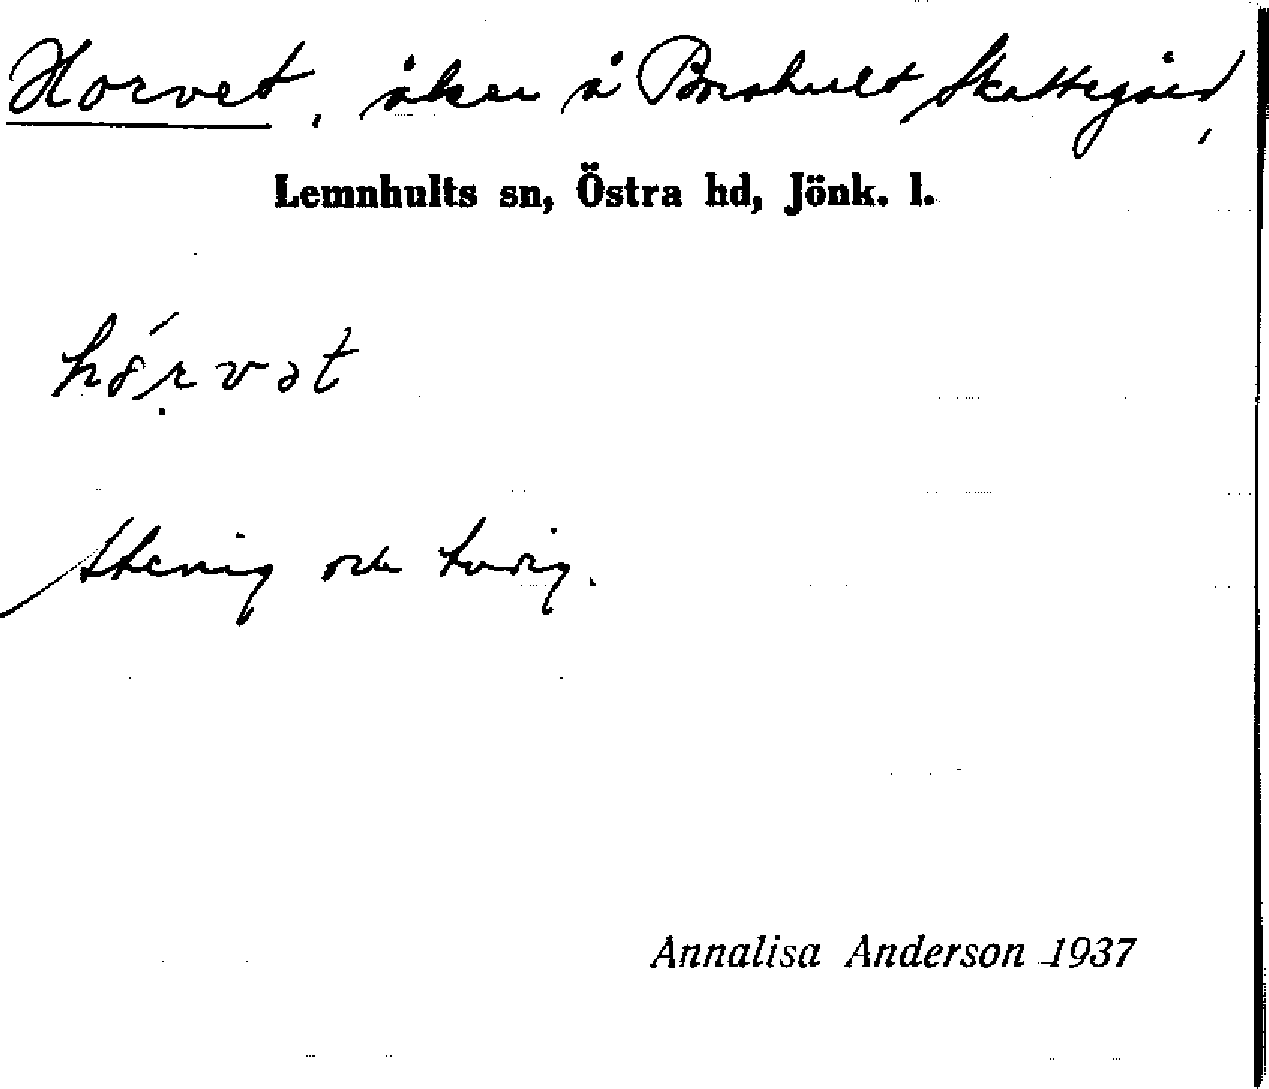 Horvet, åker å Broahult Skattegård,
Lemnhults sn, Östra hd, Jönk. l.
hórvət
Stenig och torrig.
Annalisa Anderson 1937